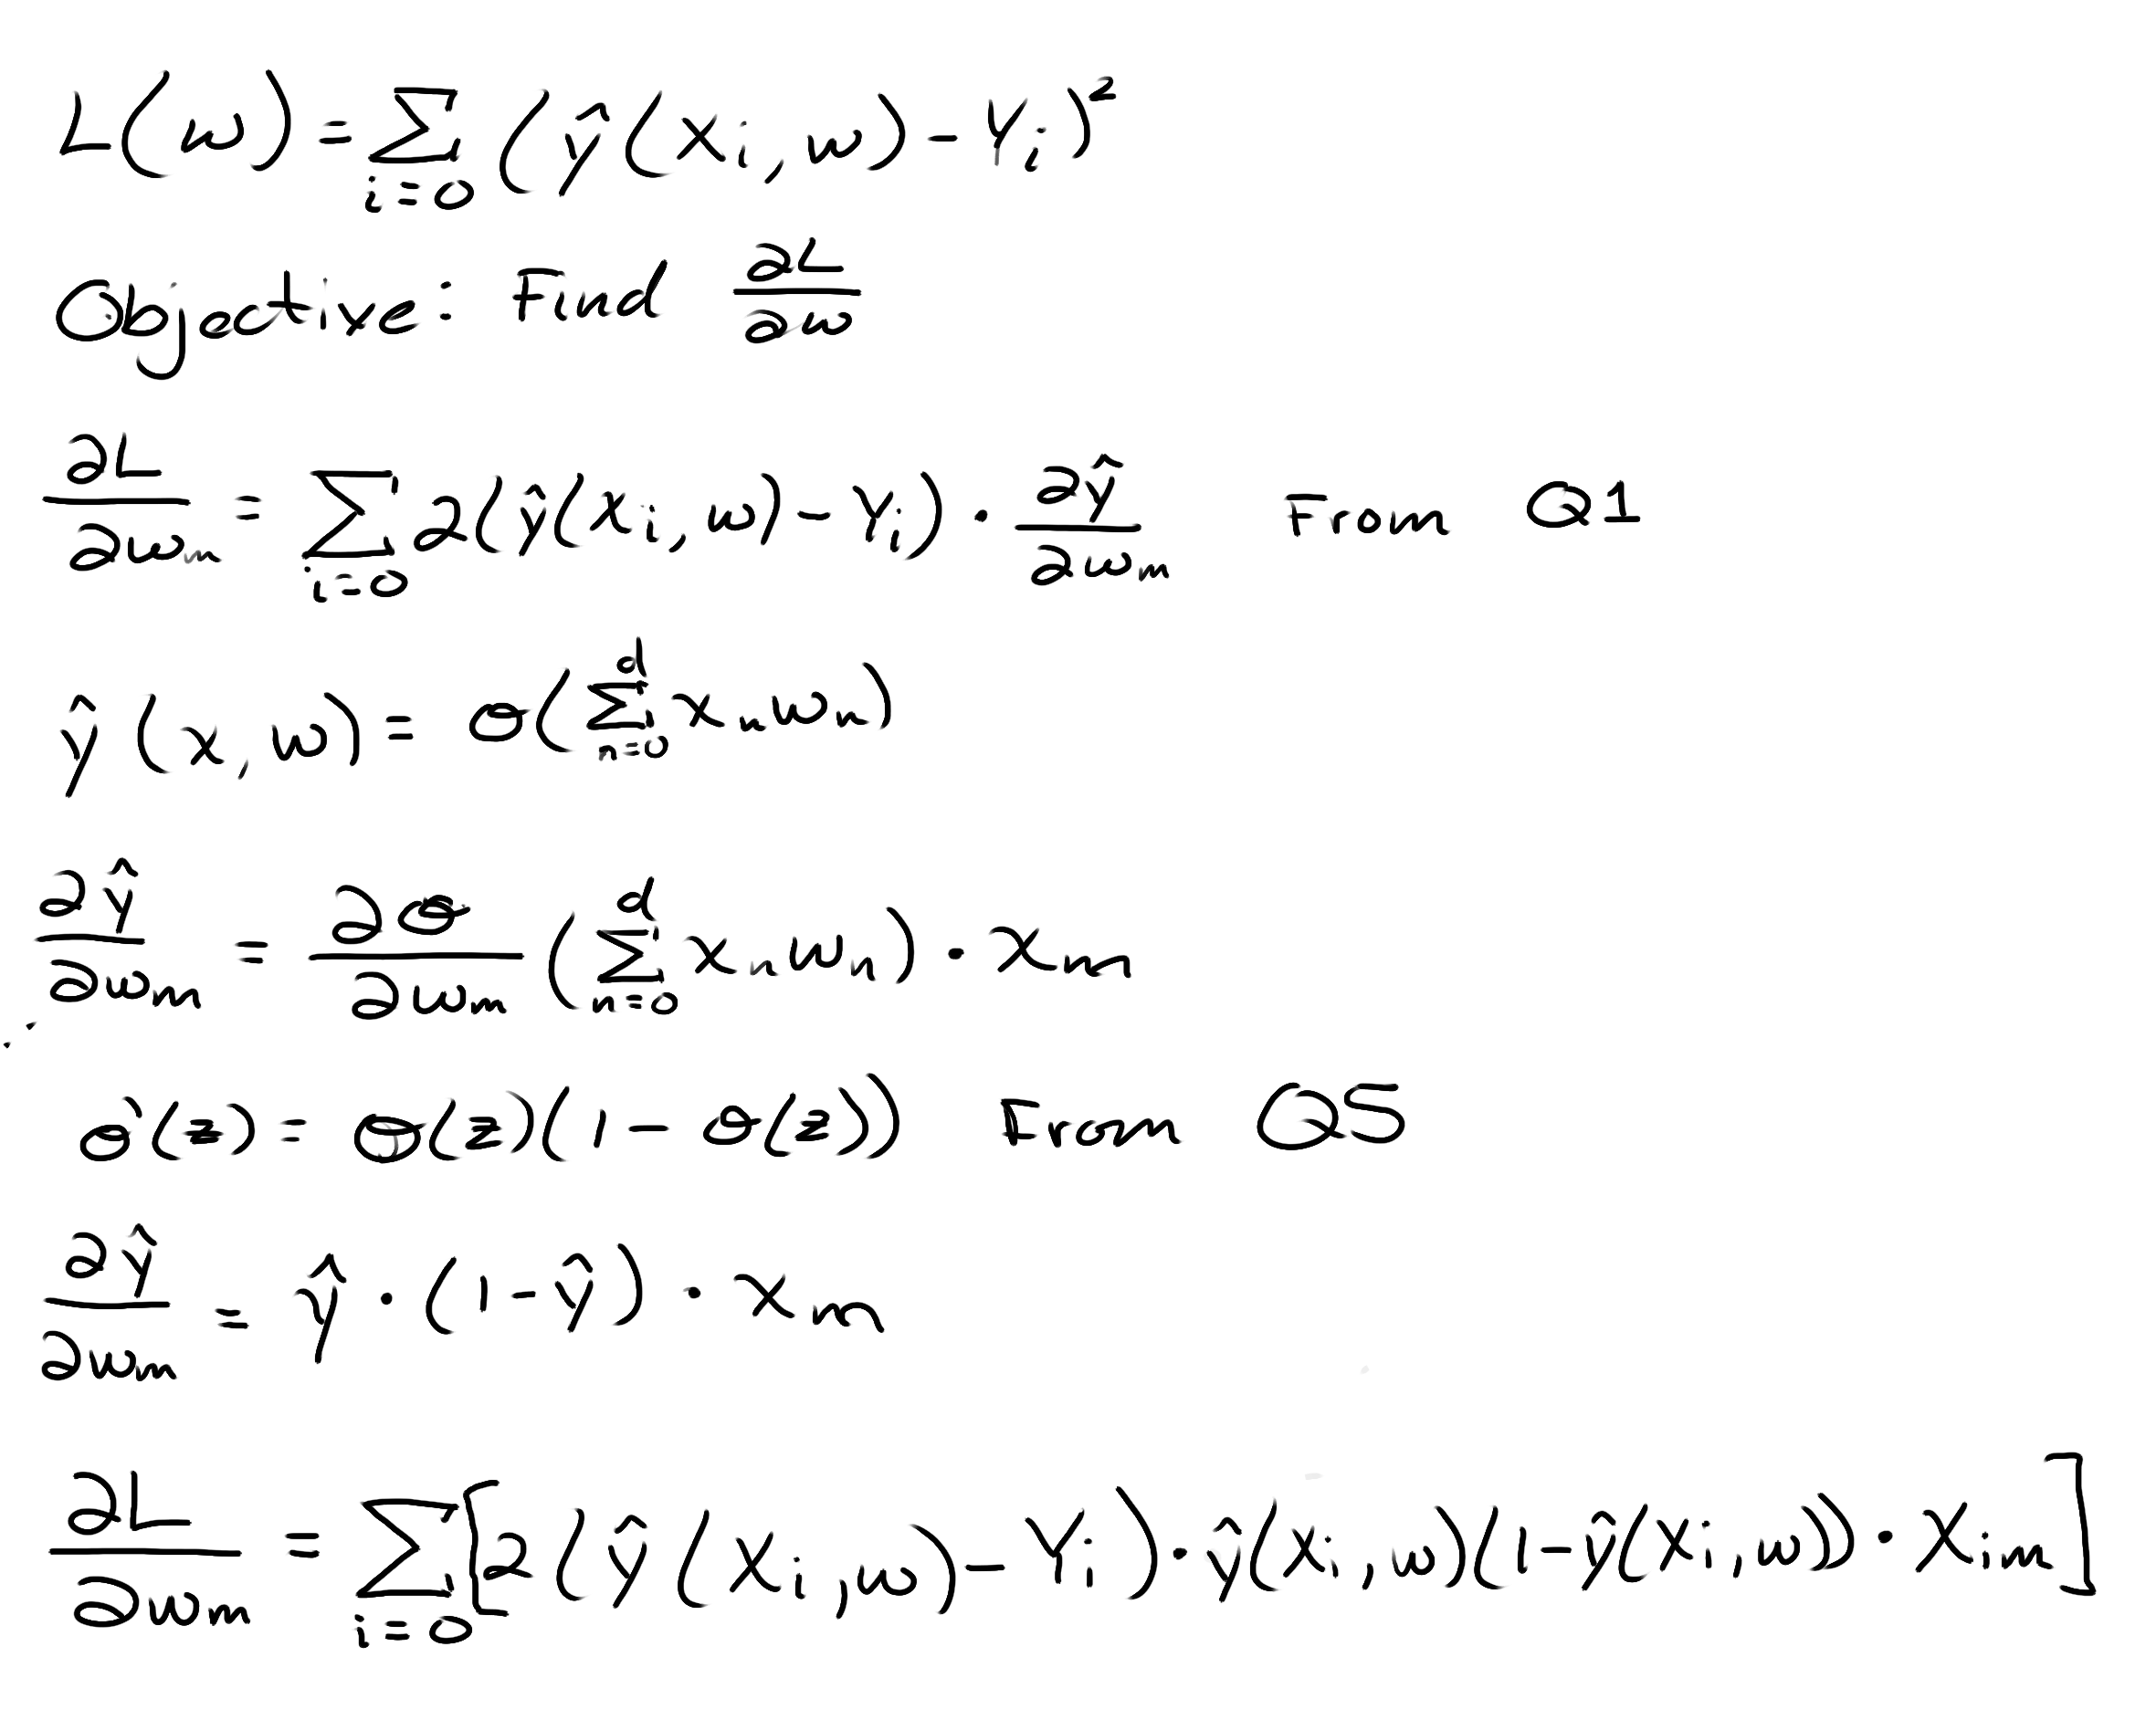 L(w) = Σ_{i=0} (ŷ(x_i, w) - Y_i)²
Objective: Find ∂L/∂w
∂L/∂w_m = Σ_{i=0} 2(ŷ(x_i, w) - Y_i) · ∂ŷ/∂w_m From Q1
ŷ(x, w) = σ(Σ_{n=0}^{d} x_n w_n)
∂ŷ/∂w_m = ∂σ/∂w_m (Σ_{n=0}^{d} x_n w_n) · x_m
σ'(z) = σ(z)(1 - σ(z)) From Q5
∂ŷ/∂w_m = ŷ · (1 - ŷ) · x_m
∂L/∂w_m = Σ_{i=0} [2(ŷ(x_i, w) - Y_i) · ŷ(x_i, w)(1 - ŷ(x_i, w)) · x_{im}]